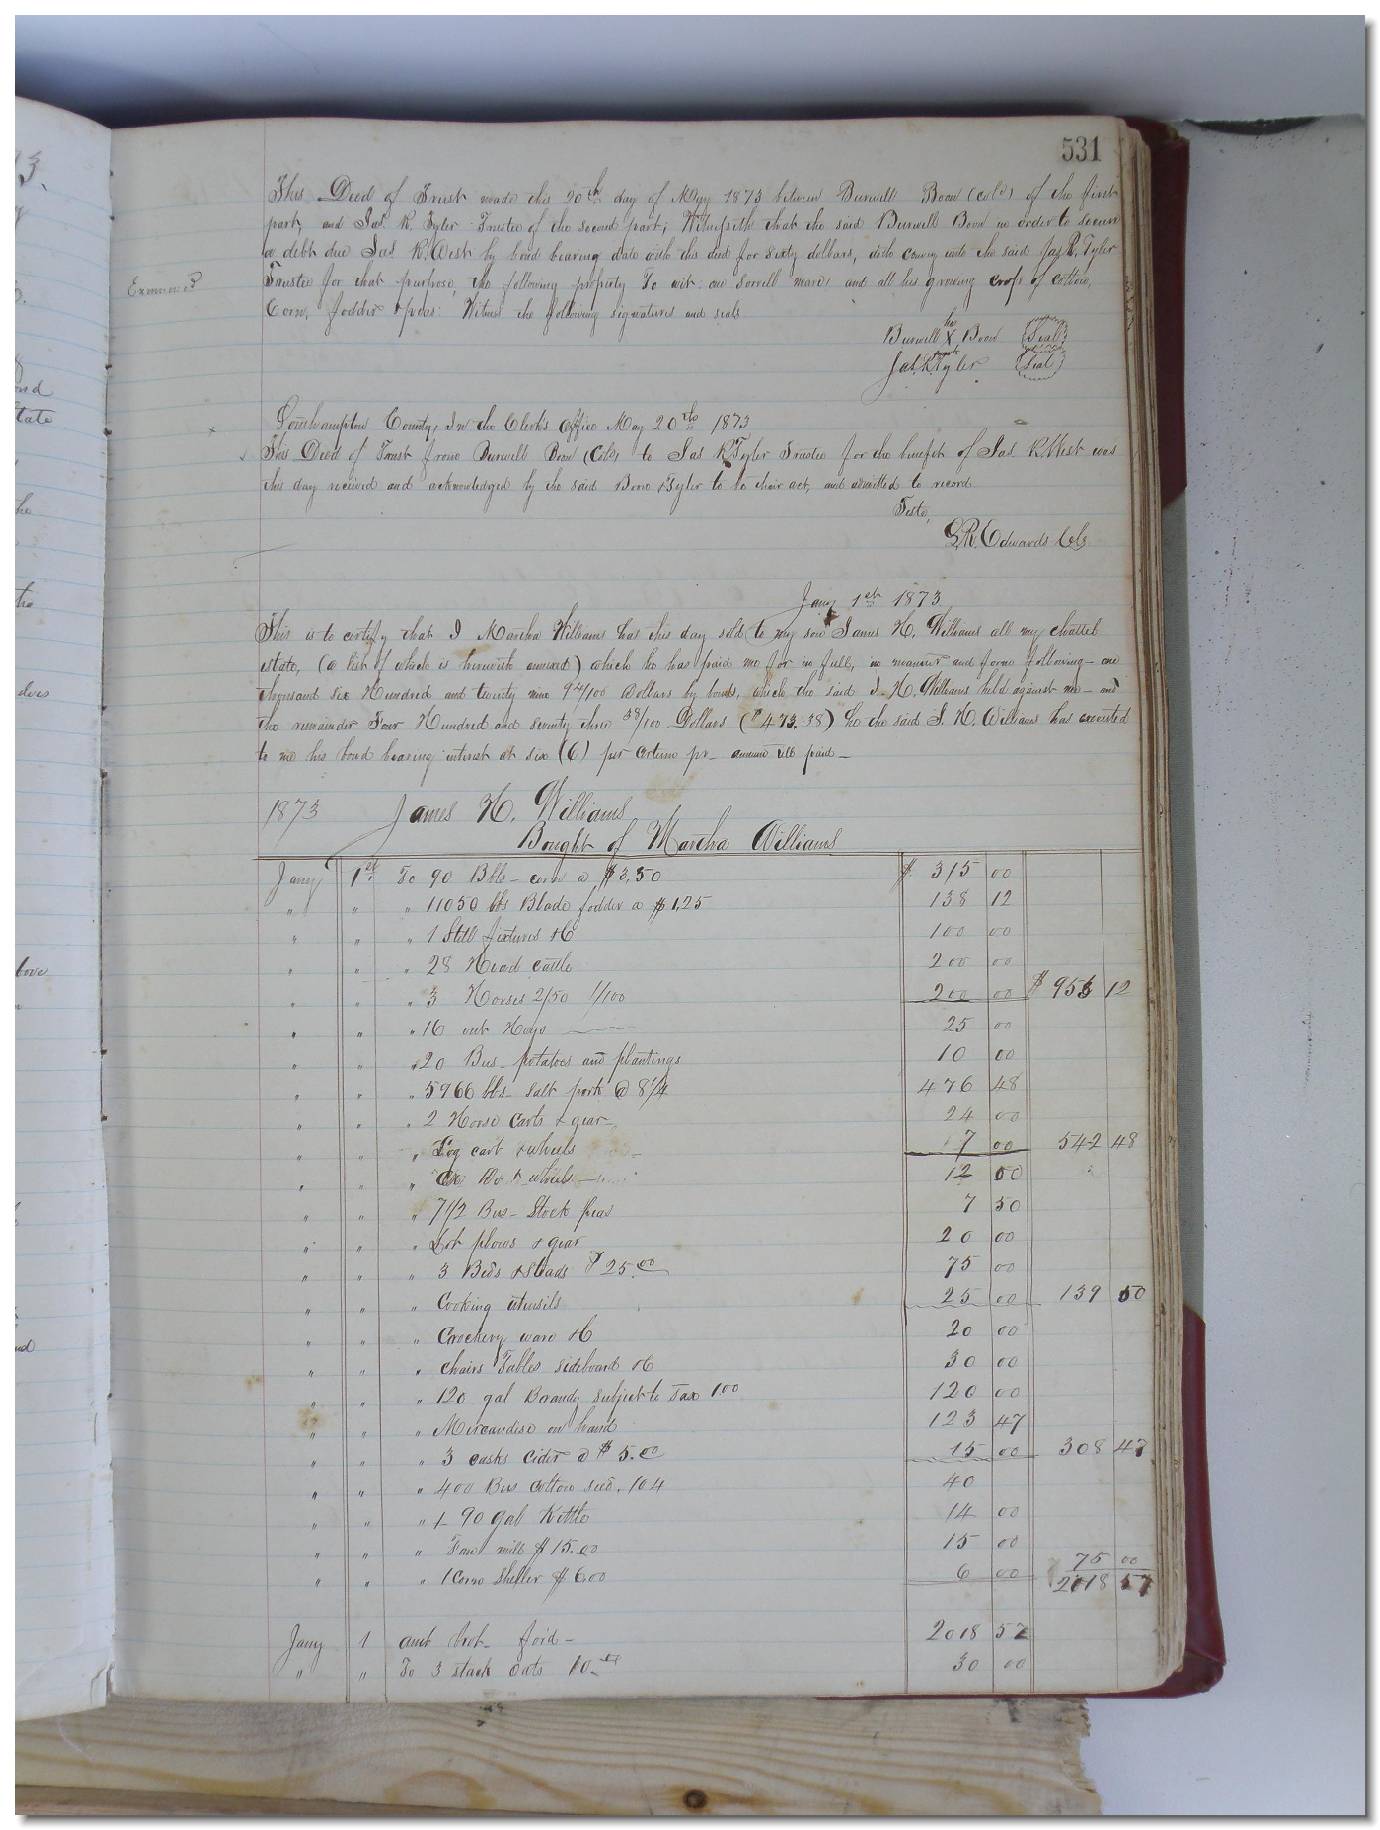 531
This Deed of Trust made this 20th day of May 1873 between Burwell Boon (Cold) of the first
part, and Jas. R. Tyler Trustee of the second part; Witnesseth that the said Burwell Boon in order to secure
a debt due Jas R. West by bond bearing date with this deed for Sixty dollars, doth convey unto the said Jas R. Tyler
Trustee for that purpose, the following property To wit: one Sorrell mare, and all his growing crops of cotton,
Examined
Corn, fodder & peas: Witness the following signatures and seals
his
Burwell X Boon (Seal)
mark
Jas. R. Tyler (Seal)
Southampton County, In the Clerk's office May 20th 1873
This Deed of Trust from Burwell Boon (Cold) to Jas R Tyler Trustee for the benefit of Jas R West was
this day received and acknowledged by the said Boon & Tyler to be their act, and admitted to record
Teste,
L.R. Edwards Clk
Jany 1st 1873
This is to certify that I Martha Williams has this day sold to my son James H. Williams all my chattel
estate, (a list of which is herewith annexed) which he has paid me for in full, in manner and form following - one
thousand six Hundred and twenty nine 94/100 Dollars by bonds, which the said J. H. Williams held against me - and
the remainder Four Hundred and seventy three 38/100 Dollars ($473.38) he the said J. H. Williams has executed
to me his bond bearing interest at six (6) per centum pr annum till paid -
1873 James H. Williams
Bought of Martha Williams
Jany 1st To 90 Bbls - corn @ $3.50 $ 315 00
" " " 11050 lbs Blade fodder @ $1.25 138 12
" " " 1 Still fixtures &C 100 00
" " " 28 Head cattle 200 00
" " " 3 Horses 2/50 1/100 200 00 $ 953 12
" " " 16 out Hogs 25 00
" " " 20 Bus - potatoes and plantings 10 00
" " " 5966 lbs - salt pork @ 8 1/4 476 48
" " " 2 Horse Carts & gear - 24 00
" " " Log cart & wheels 7 00 542 48
" " " Ox Do & wheels 12 00
" " " 7 1/2 Bus - Stock peas 7 50
" " " Lot plows & gear 20 00
" " " 3 Beds & Steads $25.00 75 00
" " " Cooking utensils 25 00 139 50
" " " Crockery ware &C 20 00
" " " chairs Tables sideboard &C 30 00
" " " 120 gal Brandy subject to Tax 1.00 120 00
" " " Mercandise on hand 123 47
" " " 3 casks Cider @ $5.00 15 00 308 47
" " " 400 Bus cotton seed . 104 40
" " " 1 - 90 gal Kettle 14 00
" " " Fan mill $15.00 15 00
" " " 1 Corn Sheller $6.00 6 00 75 00
2018 57
Jany 1 amt brot - ford - 2018 57
" " To 3 stack oats 10 30 00